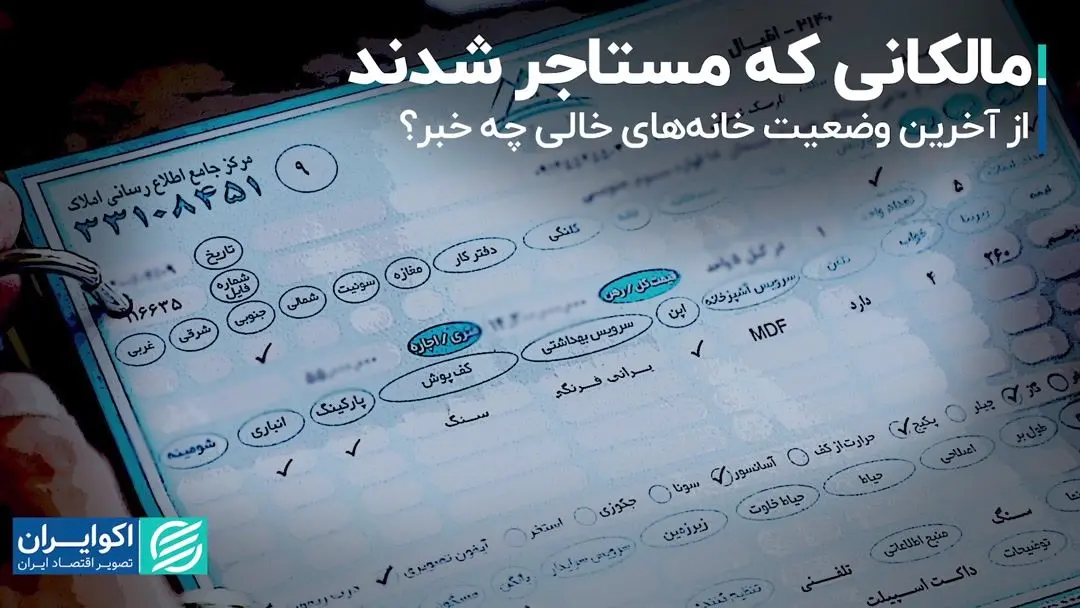 مالکانی که مستاجر شدند
از آخرین وضعیت خانه‌های خالی چه خبر؟
مرکز جامع اطلاع رسانی املاک
۳۳۱۰۸۴۵۱
۹
تاریخ
شماره فایل
۱۱۶۶۳۵
کلنگی
دفتر کار
مغازه
سوئیت
شمالی
جنوبی
شرقی
غربی
تعداد واحد
۵
زیربنا
خواب
تلفن
سرویس آشپزخانه
اپن
سرویس بهداشتی
کف پوش
پارکینگ
انباری
شومینه
قیمت کل / رهن
متری / اجاره
۲۶۰
۴
دارد
MDF
سنگ
گاز
چیلر
پکیج
حرارت از کف
آسانسور
سونا
جکوزی
استخر
آیفون تصویری
طول بر
اصلاحی
حیاط
حیاط خلوت
زیرزمین
سرویس سرایدار
سنگ
منبع اطلاعاتی
تلفنی
تنظیم کننده
توضیحات
داکت اسپیلت
اکوایران
تصویر اقتصاد ایران